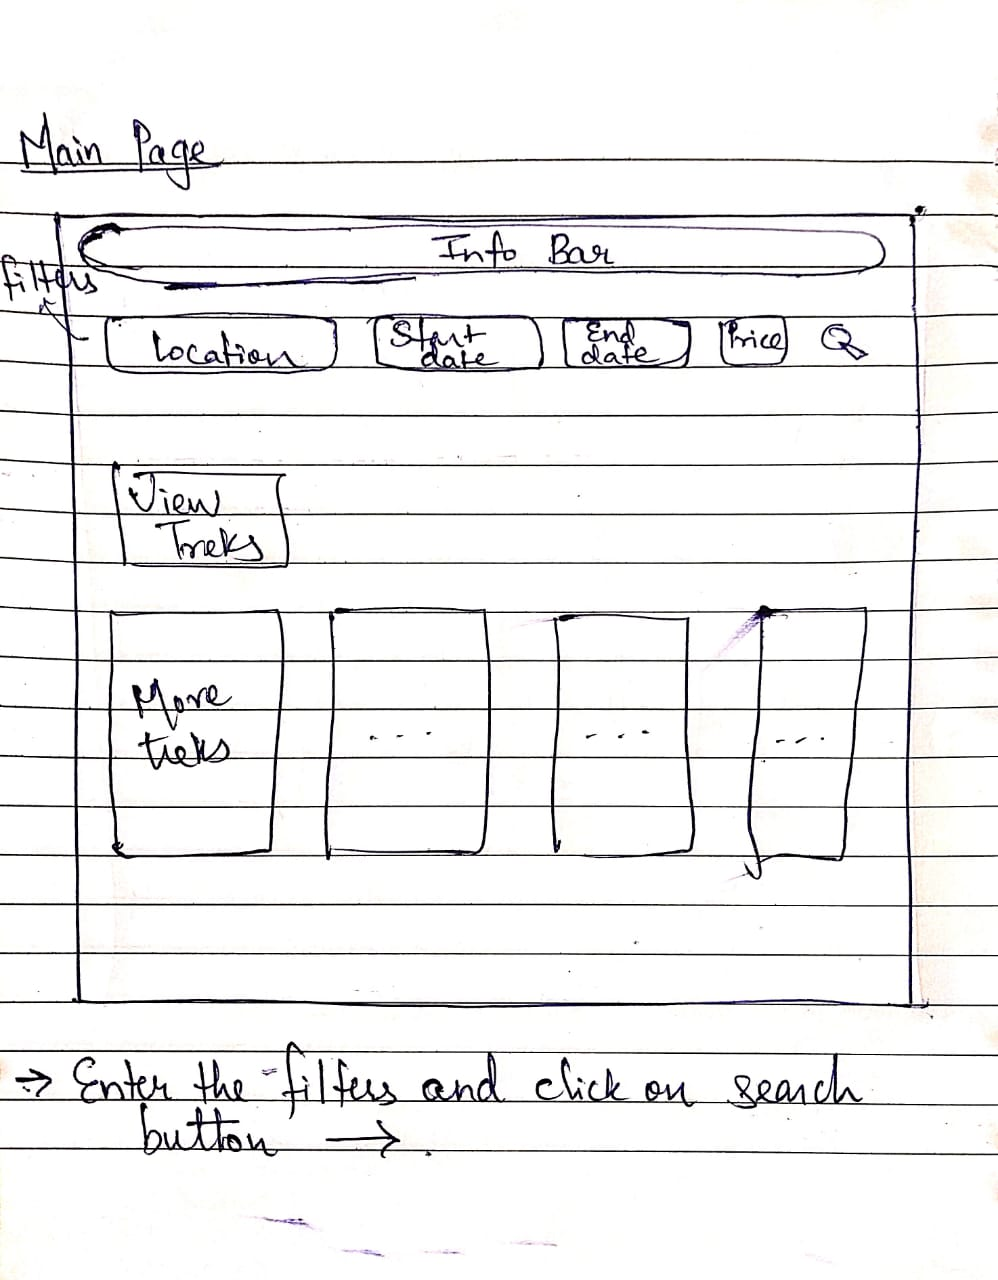 Main Page
Info Bar
filters
Location
Start
date
End
date
Price
View
Treks
More
treks
- - -
- - -
- - -
→ Enter the filters and click on search
button →.